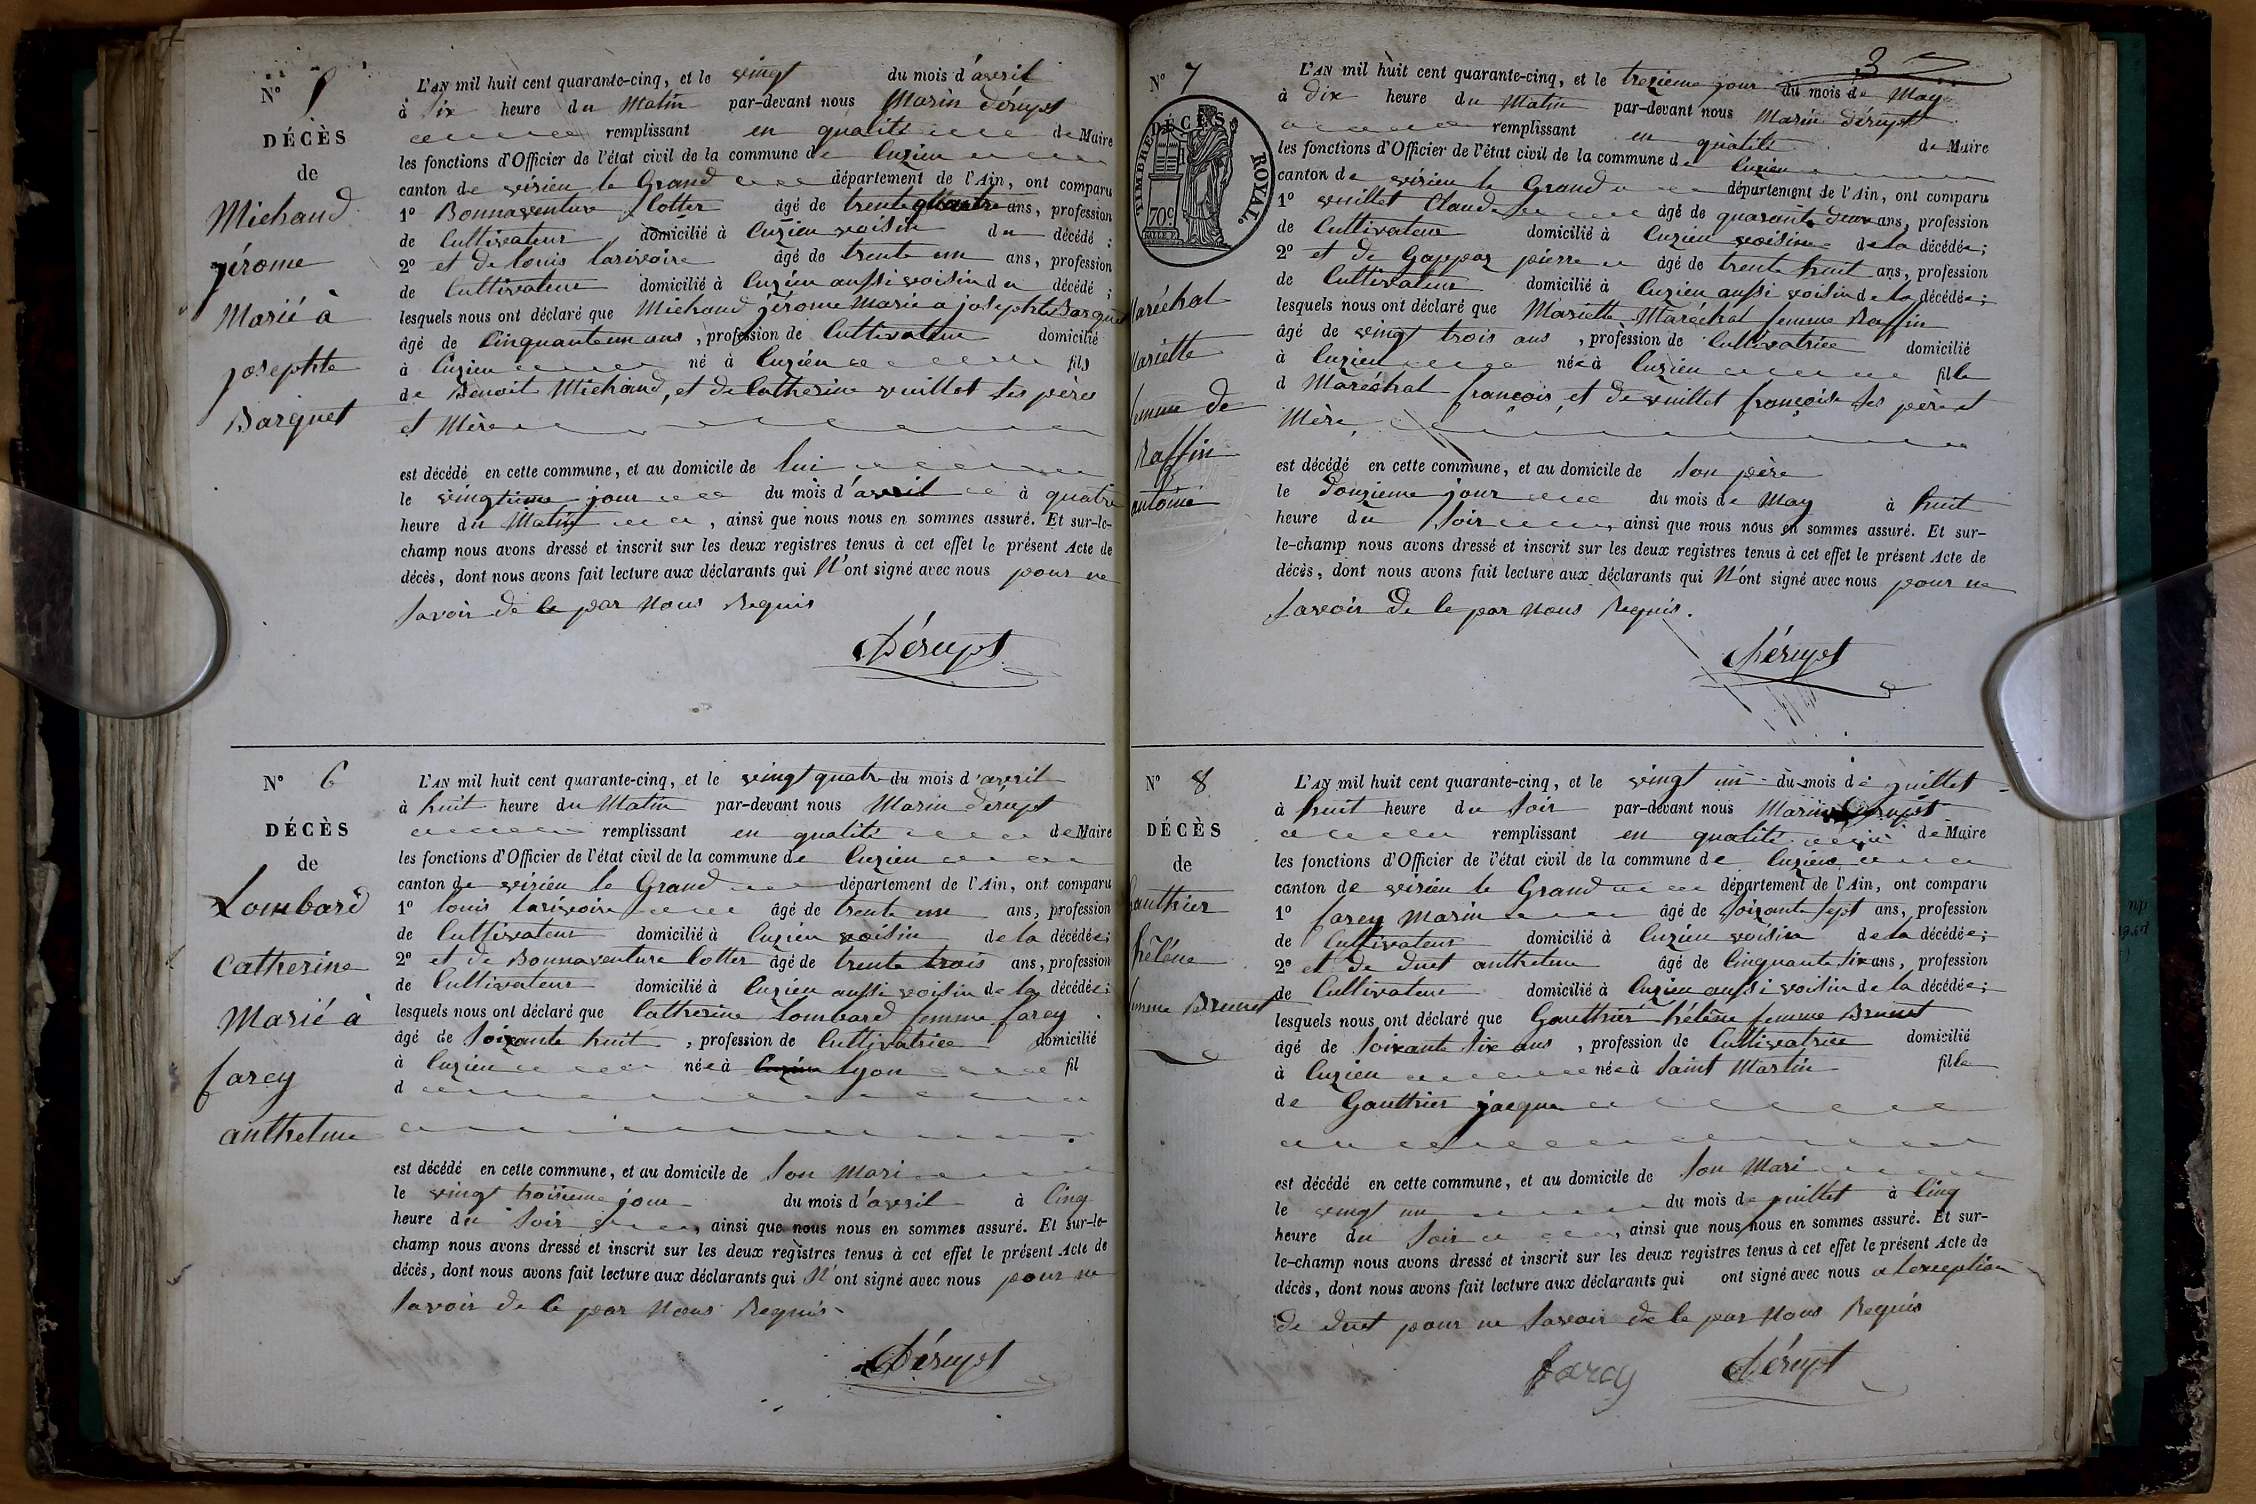 N° 5
DÉCÈS
de
Michaud
jérome
Marié à
josephte
Barquet
L'AN mil huit cent quarante-cinq, et le vingt du mois d'avril
à six heure du Matin par-devant nous Marin Dérupt
remplissant en qualité de Maire
les fonctions d'Officier de l'état civil de la commune de Cuzieu
canton de virieu le Grand département de l'Ain, ont comparu
1° Bonnaventure Cotter âgé de trente quatre ans, profession
de Cultivateur domicilié à Cuzieu voisin du décédé;
2° et de louis larivoire âgé de trente un ans, profession
de Cultivateur domicilié à Cuzieu aussi voisin du décédé;
lesquels nous ont déclaré que Michaud jérome Marié a josephte Barquet
âgé de Cinquante un ans, profession de Cultivateur domicilié
à Cuzieu né à Cuzieu fils
de Benoit Michaud, et de Catherine vuillet ses père
et Mère
est décédé en cette commune, et au domicile de lui
le vingtième jour du mois d'avril à quatre
heure du Matin, ainsi que nous nous en sommes assuré. Et sur-le-
champ nous avons dressé et inscrit sur les deux registres tenus à cet effet le présent Acte de
décès, dont nous avons fait lecture aux déclarants qui N'ont signé avec nous pour ne
savoir de ce par Nous Requis
Dérupt
N° 6
DÉCÈS
de
Lombard
Catherine
Marié à
farcy
anthelme
L'AN mil huit cent quarante-cinq, et le vingt quatre du mois d'avril
à huit heure du Matin par-devant nous Marin Dérupt
remplissant en qualité de Maire
les fonctions d'Officier de l'état civil de la commune de Cuzieu
canton de virieu le Grand département de l'Ain, ont comparu
1° louis larivoire âgé de trente un ans, profession
de Cultivateur domicilié à Cuzieu voisin de la décédée;
2° et de Bonnaventure Cotter âgé de trente trois ans, profession
de Cultivateur domicilié à Cuzieu aussi voisin de la décédée;
lesquels nous ont déclaré que Catherine Lombard femme farcy
âgé de Soixante huit, profession de Cultivatrice domicilié
à Cuzieu née à Cuzieu Lyon fil
d
est décédé en cette commune, et au domicile de son Mari
le vingt troisième jour du mois d'avril à Cinq
heure du Soir, ainsi que nous nous en sommes assuré. Et sur-le-
champ nous avons dressé et inscrit sur les deux registres tenus à cet effet le présent Acte de
décès, dont nous avons fait lecture aux déclarants qui N'ont signé avec nous pour ne
savoir de ce par Nous Requis
Dérupt
37
N° 7
DÉCÈS
TIMBRE ROYAL.
70c
Maréchal
Mariette
femme de
Raffin
antoine
L'AN mil huit cent quarante-cinq, et le trezieme jour du mois de May
à dix heure du Matin par-devant nous Marin Dérupt
remplissant en qualité de Maire
les fonctions d'Officier de l'état civil de la commune de Cuzieu
canton de virieu le Grand département de l'Ain, ont comparu
1° vuillet Claude âgé de quarante deux ans, profession
de Cultivateur domicilié à Cuzieu voisin de la décédée;
2° et de Gappaz pierre âgé de trente huit ans, profession
de Cultivateur domicilié à Cuzieu aussi voisin de la décédée;
lesquels nous ont déclaré que Mariette Maréchal femme Raffin
âgé de vingt trois ans, profession de Cultivatrice domicilié
à Cuzieu née à Cuzieu fille
d Maréchal françois, et de vuillet françoise ses père et
Mère,
est décédé en cette commune, et au domicile de Son père
le Douzieme jour du mois de May à huit
heure du Soir, ainsi que nous nous en sommes assuré. Et sur-
le-champ nous avons dressé et inscrit sur les deux registres tenus à cet effet le présent Acte de
décès, dont nous avons fait lecture aux déclarants qui N'ont signé avec nous pour ne
savoir de ce par Nous Requis.
Dérupt
N° 8
DÉCÈS
de
Gauthier
hélène
femme Brunet
L'AN mil huit cent quarante-cinq, et le vingt un du mois de juillet
à huit heure du Soir par-devant nous Marin Dérupt
remplissant en qualité de Maire
les fonctions d'Officier de l'état civil de la commune de Cuzieu
canton de virieu le Grand département de l'Ain, ont comparu
1° farcy Marin âgé de Soixante sept ans, profession
de Cultivateur domicilié à Cuzieu voisin de la décédée;
2° et de Duet anthelme âgé de Cinquante six ans, profession
de Cultivateur domicilié à Cuzieu aussi voisin de la décédée;
lesquels nous ont déclaré que Gauthier hélène femme Brunet
âgé de Soixante Six ans, profession de Cultivatrice domicilié
à Cuzieu née à Saint Martin fille
de Gauthier jacque
est décédé en cette commune, et au domicile de Son Mari
le vingt un du mois de juillet à Cinq
heure du Soir, ainsi que nous nous en sommes assuré. Et sur-
le-champ nous avons dressé et inscrit sur les deux registres tenus à cet effet le présent Acte de
décès, dont nous avons fait lecture aux déclarants qui ont signé avec nous a lexception
de Duet pour ne Savoir de ce par Nous Requis
farcy Dérupt